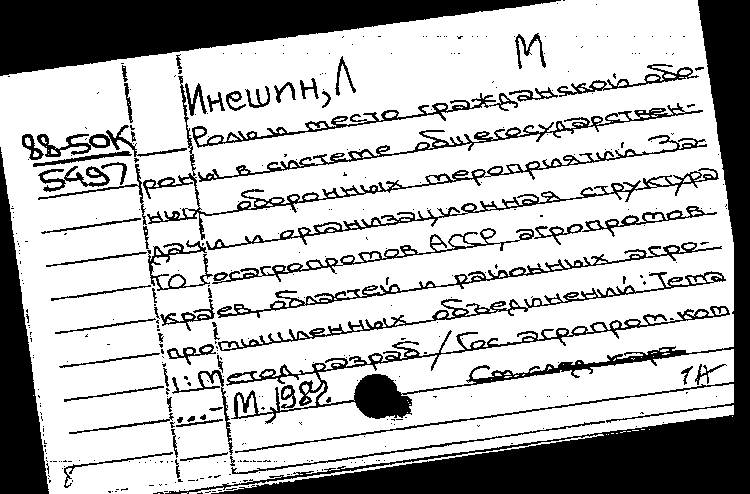 М
Инешин, Л
88-50К
5497
Роль и место гражданской обо-
роны в системе общегосударствен-
ных оборонных мероприятий. За-
дачи и организационная структура
ГО госагропромов АССР, агропромов
краев, областей и районных агро-
промышленных объединений: Тема
1: Метод. разраб. / Гос. агропром. ком.
...- М., 1987.
См. след. карт.
1А
8